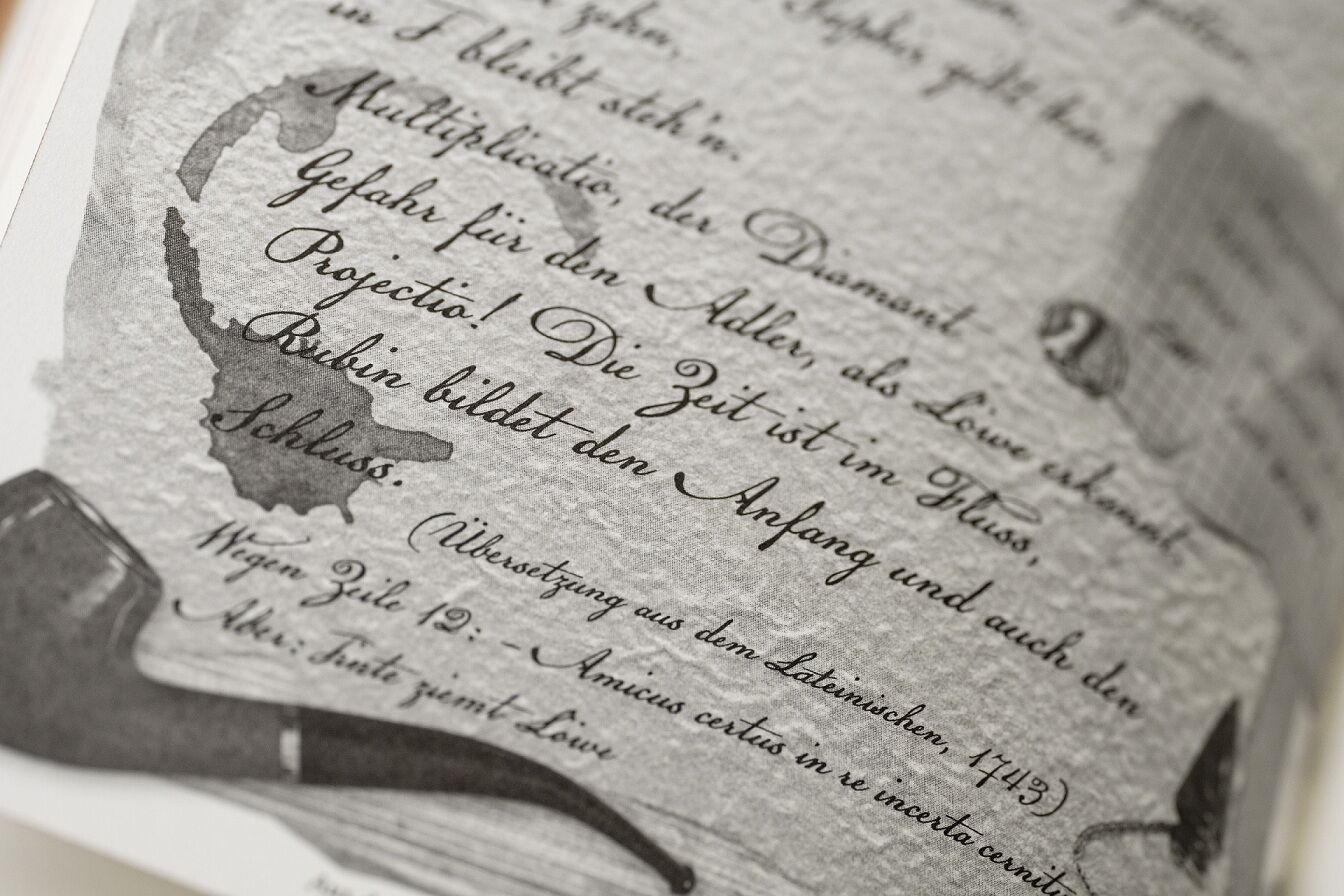 zehn,
Saphir gilt ihm,
in F bleibt steh'n.
Multiplicatio, der Diamant
Gefahr für den Adler, als Löwe erkannt.
Projectio! Die Zeit ist im Fluss,
Rubin bildet den Anfang und auch den
Schluss.
(Übersetzung aus dem Lateinischen, 1743)
Wegen Zeile 12: - Amicus certus in re incerta cernitu
Aber: Tinte ziemt Löwe